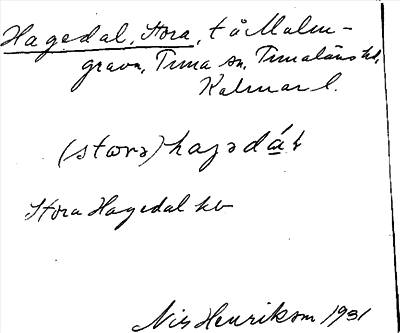 Hagedal, Stora, t å Malm-
gravn, Tuna sn, Tunaläns hd,
Kalmar l.
(stora) hagadál
Stora Hagedal kb
Nils Henrikson 1931